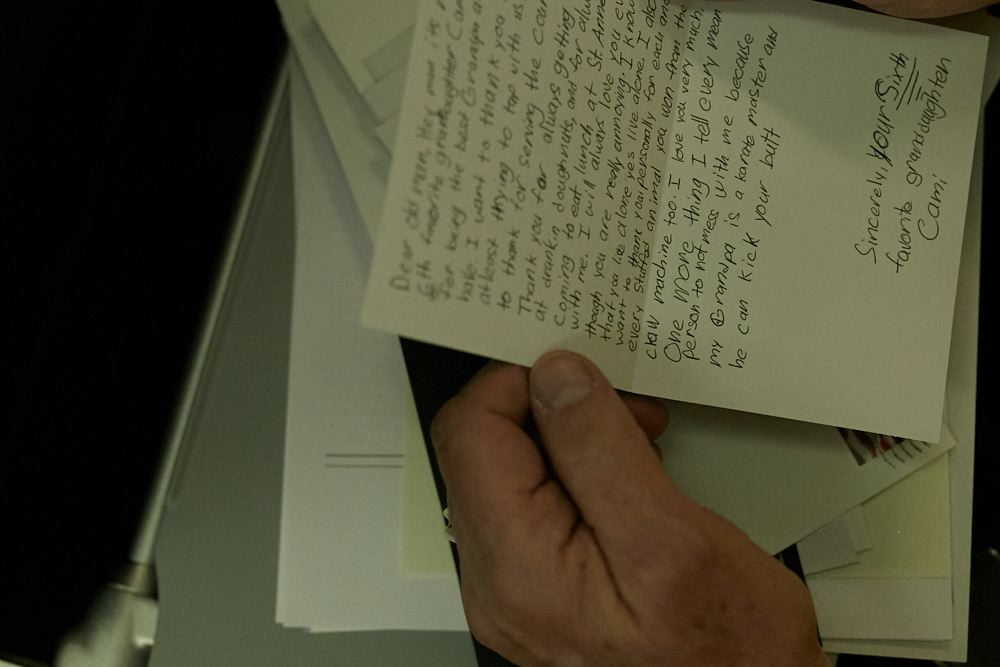 Dear old man. Hey man its
6th favorite granddaughter Cam
for being the best Grandpa a
hate. I want to thank you
atleast trying to top with us
to thank for serving the coun
Thank you for always getting
at drankin doughnuts, and for alw
Coming to eat lunch at St. Anne
with me. I will always love you ev
though you are really annoying. I know
that you live alone yes live alone. I also
want to thank you personally for each and
every Stuffed animal you won from the
claw machine too. I love you very much
One more thing I tell every mean
person to not mess with me because
my Grandpa is a karate master and
he can kick your butt
Sincerely, your Sixth
favorite granddaughter
Cami